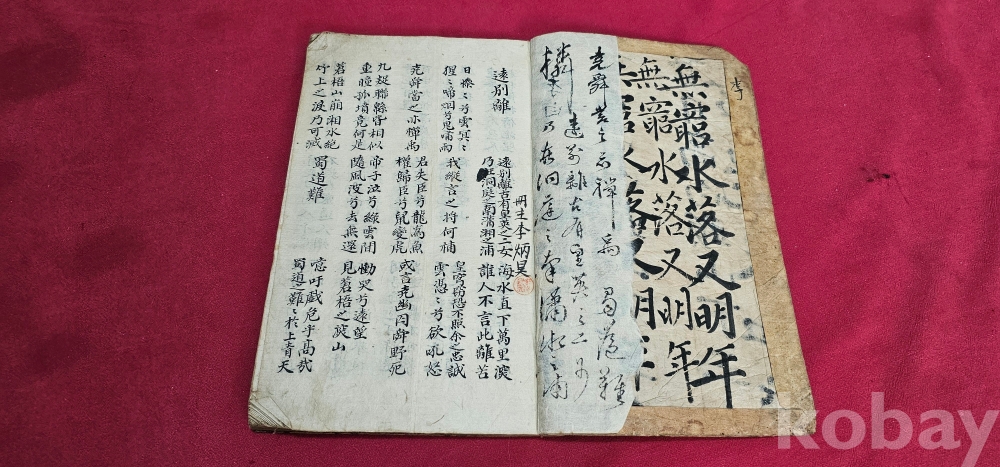 李
無竆水落又明年
無竆水落又明年
堯舜當之亦禪禹 蜀道難
遠別離古有皇英之二女
乃在洞庭之南瀟水之浦
冊主李炳昊
遠別離
遠別離古有皇英之二女 海水直下萬里深
乃在洞庭之南瀟湘之浦 誰人不言此離苦
日慘〻兮雲冥〻
猩〻啼烟兮鬼嘯雨
我縱言之將何補
皇穹竊恐不照余之忠誠
雲憑〻兮欲吼怒
堯舜當之亦禪禹
君失臣兮龍爲魚
權歸臣兮鼠變虎
或言堯幽囚舜野死
九疑聯緜皆相似
重瞳孤墳竟何是
帝子泣兮綠雲間
隨風波兮去無還
慟哭兮遠望
見蒼梧之深山
蒼梧山崩湘水絶
竹上之淚乃可滅
蜀道難
噫吁戲危乎高哉
蜀道之難〻於上青天
kobay